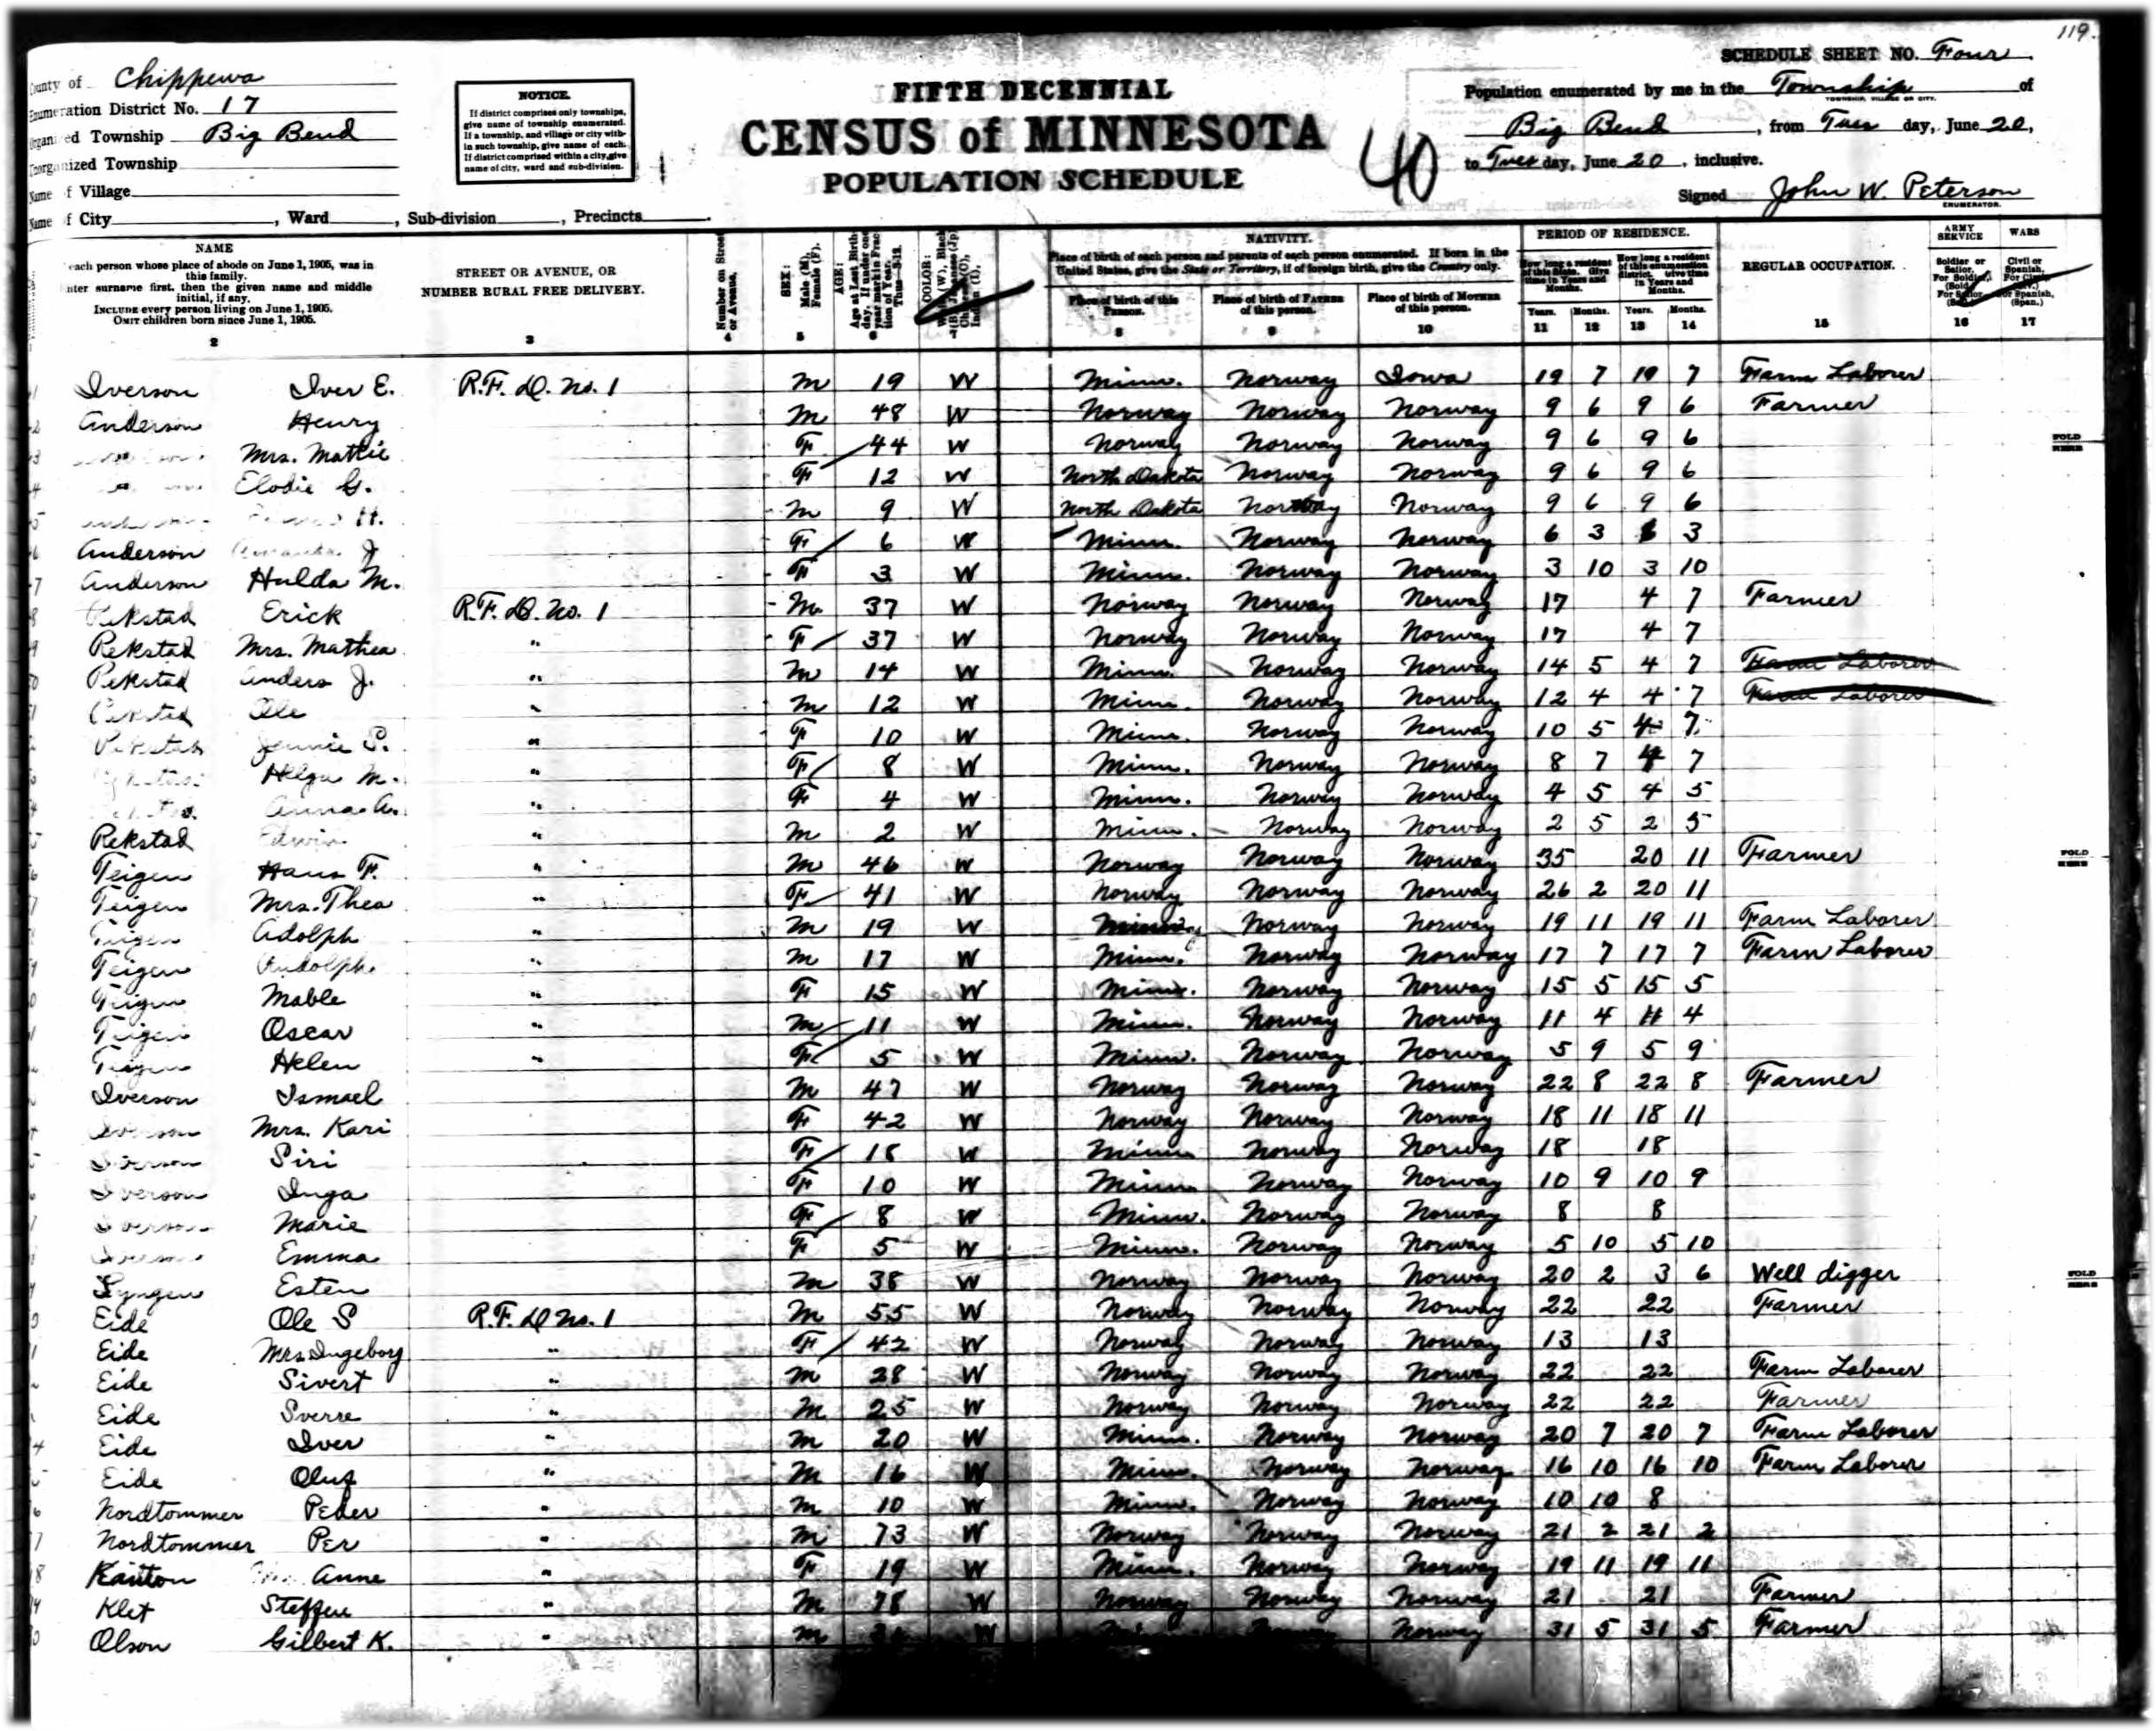 119.
County of Chippewa
Enumeration District No. 17
Organized Township Big Bend
Unorganized Township
Name of Village
Name of City , Ward , Sub-division , Precincts .
NOTICE.
If district comprises only townships,
give name of township enumerated.
If a township, and village or city with-
in such township, give name of each.
If district comprised within a city, give
name of city, ward and sub-division.
FIFTH DECENNIAL
CENSUS of MINNESOTA
POPULATION SCHEDULE
40
SCHEDULE SHEET NO. Four.
Population enumerated by me in the Township of
TOWNSHIP, VILLAGE OR CITY.
Big Bend , from Tues day, June 20,
to Tues day, June 20, inclusive.
Signed John W. Peterson
ENUMERATOR.
NAME
each person whose place of abode on June 1, 1905, was in
this family.
Enter surname first, then the given name and middle
initial, if any.
INCLUDE every person living on June 1, 1905.
OMIT children born since June 1, 1905.
2
STREET OR AVENUE, OR
NUMBER RURAL FREE DELIVERY.
3
Number on Street
or Avenue.
SEX:
Male (M),
Female (F).
5
AGE:
COLOR:
NATIVITY.
Place of birth of each person and parents of each person enumerated. If born in the
United States, give the State or Territory, if of foreign birth, give the Country only.
Place of birth of this
PERSON.
8
Place of birth of FATHER
of this person.
9
Place of birth of MOTHER
of this person.
10
PERIOD OF RESIDENCE.
How long a resident
of this State. Give
time in Years and
Months.
How long a resident
of this enumeration
district. Give time
in Years and
Months.
Years. Months. Years. Months.
11 12 13 14
REGULAR OCCUPATION.
15
ARMY
SERVICE
Soldier or
Sailor.
16
WARS
Civil or
Spanish.
17
Iverson Iver E. R.F.D. No. 1 M 19 W Minn. Norway Iowa 19 7 19 7 Farm Laborer
Anderson Henry M 48 W Norway Norway Norway 9 6 9 6 Farmer
Mrs. Mattie F 44 W Norway Norway Norway 9 6 9 6
Elodie G. F 12 W North Dakota Norway Norway 9 6 9 6
H. M 9 W North Dakota Norway Norway 9 6 9 6
Anderson J F 6 W Minn. Norway Norway 6 3 3
Anderson Hulda M. F 3 W Minn. Norway Norway 3 10 3 10
Rekstad Erick R.F.D. No. 1 M 37 W Norway Norway Norway 17 4 7 Farmer
Rekstad Mrs. Mathea " F 37 W Norway Norway Norway 17 4 7
Rekstad Anders J. " M 14 W Minn. Norway Norway 14 5 4 7 Farm Laborer
Rekstad Ole " M 12 W Minn. Norway Norway 12 4 4 7 Farm Laborer
Rekstad Jennie P. " F 10 W Minn. Norway Norway 10 5 4 7
Helga M. " F 8 W Minn. Norway Norway 8 7 4 7
Anna A. " F 4 W Minn. Norway Norway 4 5 4 5
Rekstad Edwin " M 2 W Minn. Norway Norway 2 5 2 5
Teigen Hans F. " M 46 W Norway Norway Norway 35 20 11 Farmer
Teigen Mrs. Thea " F 41 W Norway Norway Norway 26 2 20 11
Teigen Adolph " M 19 W Minn Norway Norway 19 11 19 11 Farm Laborer
Teigen Rudolph " M 17 W Minn. Norway Norway 17 7 17 7 Farm Laborer
Teigen Mable " F 15 W Minn. Norway Norway 15 5 15 5
Teigen Oscar " M 11 W Minn. Norway Norway 11 4 11 4
Teigen Helen " F 5 W Minn. Norway Norway 5 9 5 9
Iverson Ismael M 47 W Norway Norway Norway 22 8 22 8 Farmer
Iverson Mrs. Kari F 42 W Norway Norway Norway 18 11 18 11
Iverson Siri F 18 W Minn Norway Norway 18 18
Iverson Inga F 10 W Minn Norway Norway 10 9 10 9
Iverson Marie F 8 W Minn. Norway Norway 8 8
Iverson Emma F 5 W Minn. Norway Norway 5 10 5 10
Lyngen Esten M 38 W Norway Norway Norway 20 2 3 6 Well digger
Eide Ole S R.F.D No. 1 M 55 W Norway Norway Norway 22 22 Farmer
Eide Mrs. Ingeborg " F 42 W Norway Norway Norway 13 13
Eide Sivert " M 28 W Norway Norway Norway 22 22 Farm Laborer
Eide Sverre " M 25 W Norway Norway Norway 22 22 Farmer
Eide Iver " M 20 W Minn. Norway Norway 20 7 20 7 Farm Laborer
Eide Oluf " M 16 W Minn. Norway Norway 16 10 16 10 Farm Laborer
Nordtommer Peder " M 10 W Minn. Norway Norway 10 10 8
Nordtommer Per " M 73 W Norway Norway Norway 21 2 21 2
Anne " F 19 W Minn. Norway Norway 19 11 19 11
Klet Steffen " M 78 W Norway Norway Norway 21 21 Farmer
Olson Gilbert K. " M W Norway 31 5 31 5 Farmer
FOLD
HERE
FOLD
HERE
FOLD
HERE